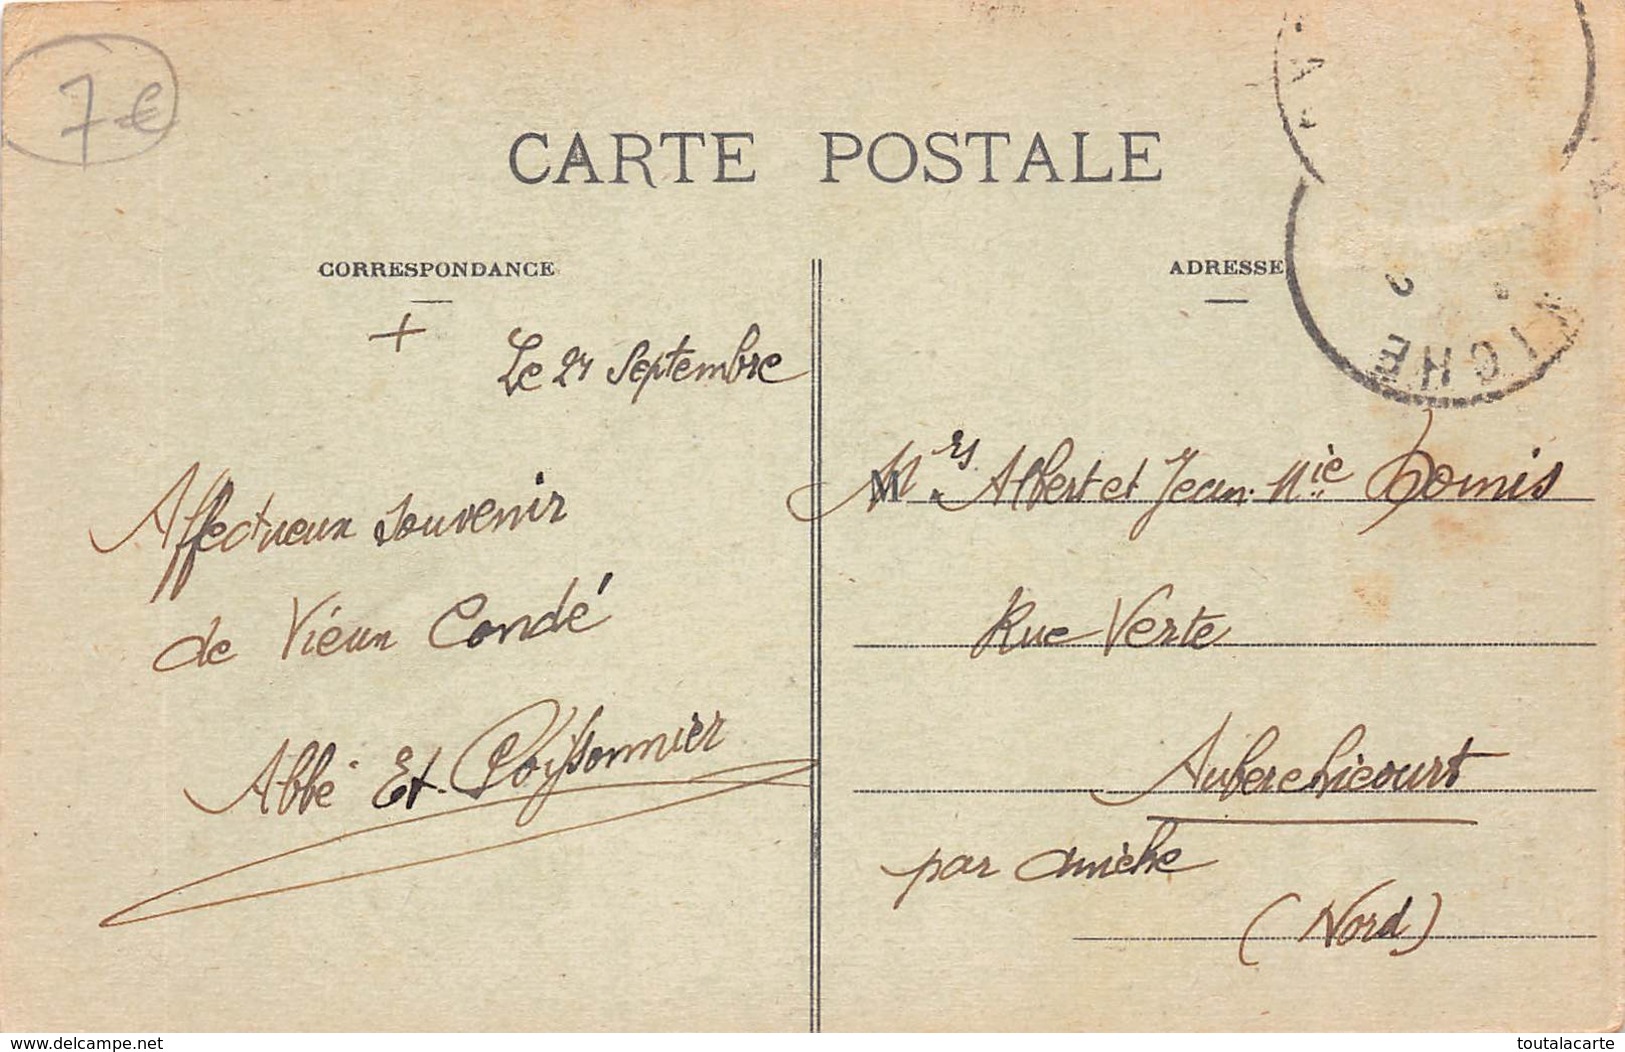 7€
CARTE POSTALE
CORRESPONDANCE
ADRESSE
ICHE
2
+
Le 27 Septembre
Affectueux souvenir
de Vieux Condé
Abbé Et. Poissonnier
M rs. Albert et Jean-Mie Domis
Rue Verte
Auberchicourt
par Aniche
(Nord)
www.delcampe.net
toutalacarte